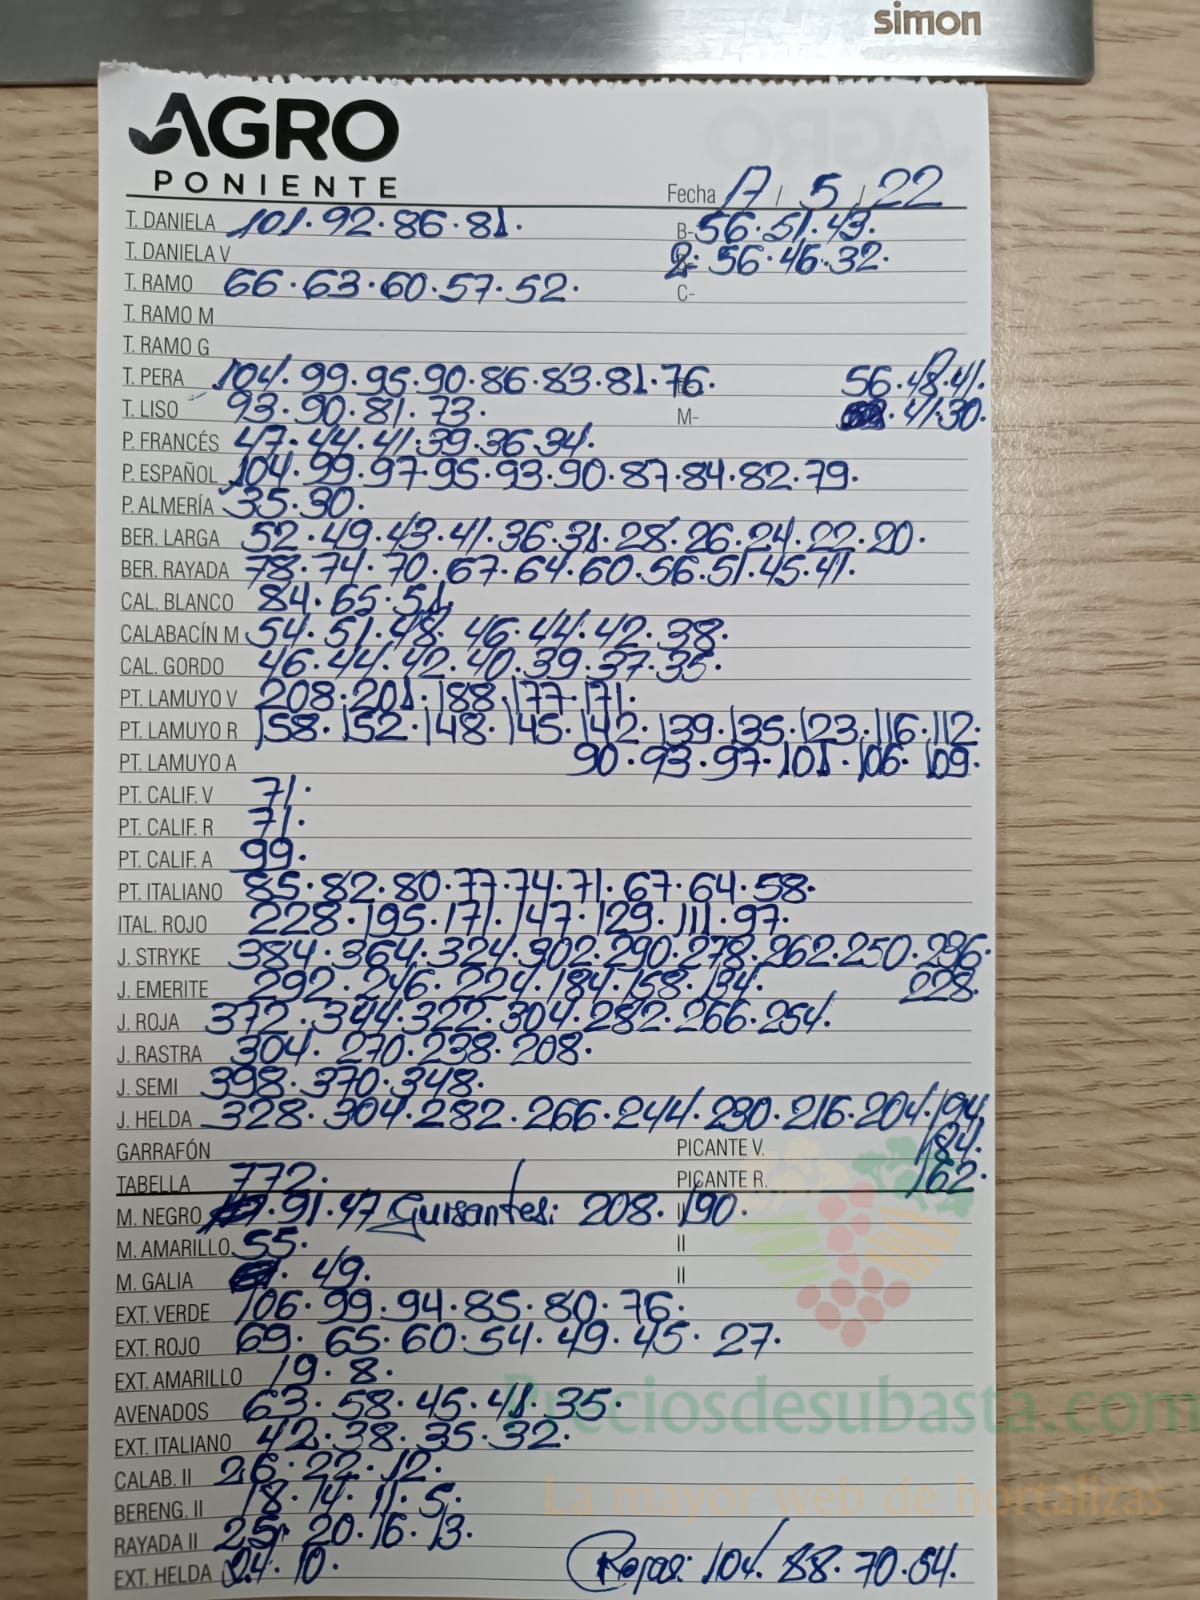 simon
AGRO
PONIENTE
Fecha 17 / 5 / 22
T. DANIELA 101. 92. 86. 81. B- 56. 51. 43.
T. DANIELA V 2. 56. 46. 32.
T. RAMO 66. 63. 60. 57. 52. C-
T. RAMO M
T. RAMO G
T. PERA 104. 99. 95. 90. 86. 83. 81. 76. 56. 48. 41.
T. LISO 93. 90. 81. 73. M- 41. 30.
P. FRANCÉS 47. 44. 41. 39. 36. 34.
P. ESPAÑOL 104. 99. 97. 95. 93. 90. 87. 84. 82. 79.
P. ALMERÍA 35. 30.
BER. LARGA 52. 49. 43. 41. 36. 31. 28. 26. 24. 22. 20.
BER. RAYADA 78. 74. 70. 67. 64. 60. 56. 51. 45. 41.
CAL. BLANCO 84. 65. 51.
CALABACÍN M 54. 51. 48. 46. 44. 42. 38.
CAL. GORDO 46. 44. 42. 40. 39. 37. 35.
PT. LAMUYO V 208. 201. 188. 177. 171.
PT. LAMUYO R 158. 152. 148. 145. 142. 139. 135. 123. 116. 112.
PT. LAMUYO A 90. 93. 97. 101. 106. 109.
PT. CALIF. V 71.
PT. CALIF. R 71.
PT. CALIF. A 99.
PT. ITALIANO 85. 82. 80. 77. 74. 71. 67. 64. 58.
ITAL. ROJO 228. 195. 171. 147. 129. 111. 97.
J. STRYKE 384. 364. 324. 302. 290. 278. 262. 250. 236.
J. EMERITE 292. 246. 224. 184. 158. 134. 228.
J. ROJA 372. 344. 322. 304. 282. 266. 254.
J. RASTRA 304. 270. 238. 208.
J. SEMI 398. 370. 348.
J. HELDA 328. 304. 282. 266. 244. 230. 216. 204. 194.
GARRAFÓN PICANTE V. 184.
TABELLA 772. PICANTE R. 162.
M. NEGRO 91. 47 Guisantes: 208. 190. II
M. AMARILLO 55. II
M. GALIA 49. II
EXT. VERDE 106. 99. 94. 85. 80. 76.
EXT. ROJO 69. 65. 60. 54. 49. 45. 27.
EXT. AMARILLO 19. 8.
AVENADOS 63. 58. 45. 41. 35.
Preciosdesubasta.com
EXT. ITALIANO 42. 38. 35. 32.
CALAB. II 26. 22. 12.
La mayor web de hortalizas
BERENG. II 18. 14. 11. 5.
RAYADA II 25. 20. 16. 13.
EXT. HELDA 24. 10. Rojas: 104. 88. 70. 54.